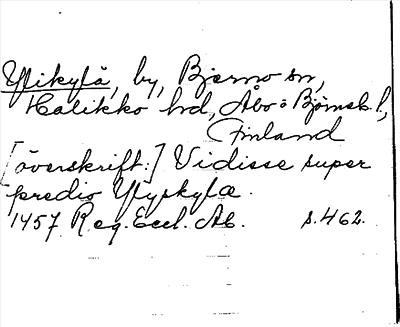 Ylikylä, by, Bjerno sn,
Halikko hd, Åbo o Björneb. l,
Finland
[överskrift:] Vidisse super
predio Ylyskylæ.
1457 Reg. Eccl. Ab. s. 462.